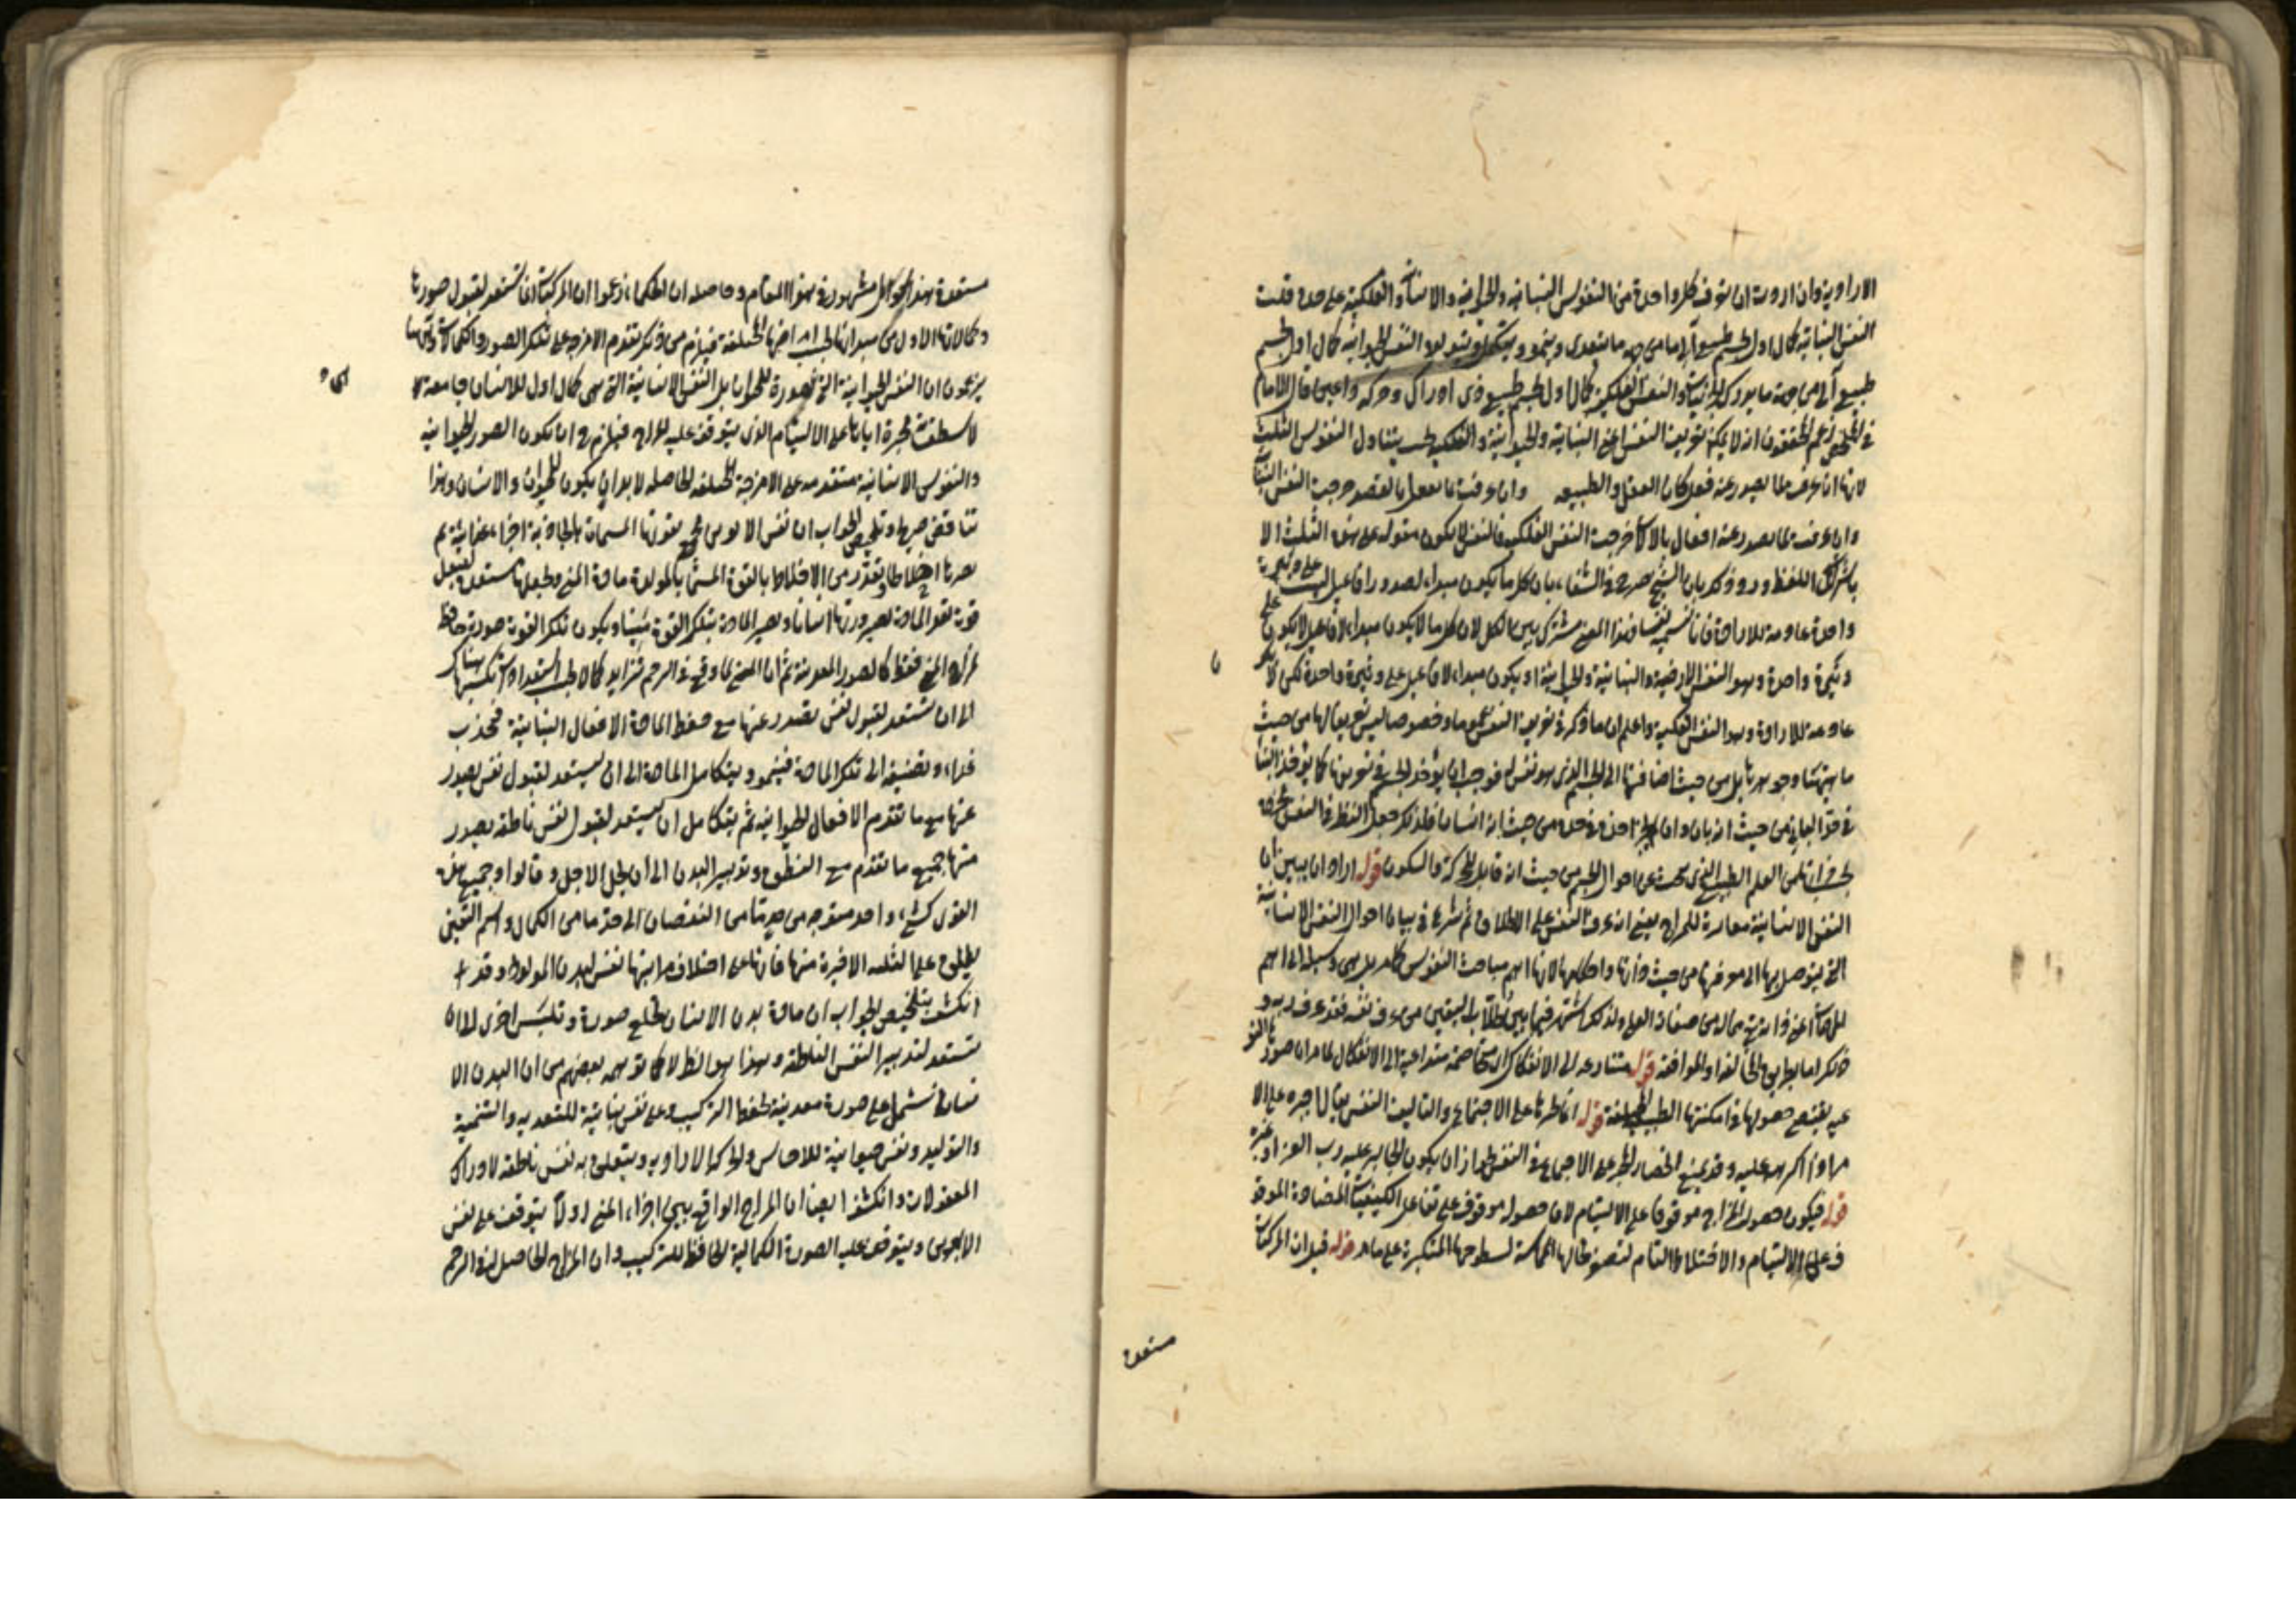 الارادية وان اردت ان تعرف كل واحدة من النفوس النباتية والحيوانية والانسانية والفلكية على حدة قلت
النفس النباتية كمال اول لجسم طبيعي آلي من جهة ما يتغذى وينمو ويتولد والنفس الحيوانية كمال اول لجسم
طبيعي آلي من جهة ما يدرك والنفس الفلكية كمال اول لجسم طبيعي ذي ادراك وحركة قال الامام
في الملخص زعم المحققون انه لا يمكن تعريف النفس اعني النباتية والحيوانية والفلكية بحيث يتناول النفوس الثلث
لانها ان عرفت بما يصدر عنه فعل كان العقل والطبيعة وان عرفت بما يفعل بالقصد خرجت النفس النباتية
وان عرفت بما يصدر عنه افعال بالآلات خرجت النفس الفلكية فالنفس لا يكون مقولة على هذه الثلث الا
باشتراك اللفظ ورد ذلك بان الشيخ صرح في الشفاء بان كل ما يكون مبدأ لصدور افاعيل ليست على وتيرة
واحدة عادمة للارادة فانا نسميه نفسا وهذا المعنى مشترك بين الكل لان كل ما لا يكون مبدأ لافاعيل لا يكون على
وتيرة واحدة وهو النفس الارضية والنباتية والحيوانية او يكون مبدأ لافاعيل على وتيرة واحدة لكن لا يكون
عادمة للارادة وهو النفس الفلكية واعلم ان ما ذكر في تعريف النفس عموما وخصوصا ليس تعريفا لها من حيث
ماهيتها وجوهرها بل من حيث اضافتها الى الجسم الذي هو نفس له فوجب ان يؤخذ الجسم في تعريفها كما يؤخذ البناء
في حد الباني من حيث انه بان وان لم يجز اخذه في حده من حيث انه انسان فلذلك جعل النظر في النفس
من العلم الطبيعي الذي يبحث عن احوال الجسم من حيث انه قابل للحركة والسكون قوله اراد ان يبين ان
النفس الانسانية مغايرة للمزاج يعني انه عرف النفس على الاطلاق ثم شرع في بيان احوال النفس الانسانية
التي يتوصل بها الى معرفتها من حيث ذاتها واحكامها لانها اهم مباحث النفوس كلها بل هي وسيلة الى اهم
المهمات اعني ذاته تعالى من صفات العلى ولذلك اشتهر فيما بين طلاب اليقين من عرف نفسه فقد عرف ربه و
ذلك اما بطريق المخالفة او الموافقة قوله متنازعة الى الانفكاك متخاصمة متداعية الى الانفكاك لما مر ان صورها النو
عية يقتضي حصولها في امكنتها الطبيعية المختلفة قوله انما يجبرها على الاجتماع والتاليف النفس يقال اجبره على الا
مر اذا اكرهه عليه وقد يمنع انحصار الجبر على الاجماع في النفس لجواز ان يكون الجابر عليه رب العزة او غيره
قوله فيكون حصول المزاج موقوفا على الالتيام لان حصوله موقوف على تفاعل الكيفيات المتضادة الموقو
ف على الالتيام والاختلاط التام لتصغر حالها المماسة لسطوحها المتكثرة على ما مر قوله قيل ان المركبات
مستعدة
مستعدة هذا سؤال مشهور في هذا المقام وحاصله ان الحكماء زعموا ان المركبات انما تستعد لقبول صورها
وكمالاتها الاول من مبدأ انها بحسب امزجتها المختلفة فيلزم من ذلك تقدم الامزجة على تلك الصور والكمالات
يزعمون ان النفس الحيوانية التي هي صورة للحيوان بل النفس الانسانية التي هي كمال اول للانسان جامعة
لاسطقسات مجبرة اياها على الالتيام الذي يتوقف عليه المزاج فيلزم ح ان يكون الصور الحيوانية
والنفوس الانسانية متقدمة على الامزجة المختلفة الحاصلة لابدان يكون للحيوان والانسان وهذا
تناقض صريح وتلخيص الجواب ان نفس الابوين تجمع بقوتها المسماة بالجاذبة اجزاء غذائية ثم
تصيرها اخلاطا وتفرز من الاخلاط بالقوة المسماة بالمولدة مادة المني وتجعلها مستعدة لقبول
قوة تعد المادة لصيرورتها انسانا وتصير المادة بتلك القوة منيا ويكون تلك القوة صورة حافظة
لمزاج المني فقط كالصور المعدنية ثم ان المني لما وقع في الرحم تتزايد كمالا بحسب استعدادات يكتسبها هناك
الى ان تستعد لقبول نفس يصدر عنها مع حفظ المادة الافعال النباتية فتجذب
غذاء وتضيفه الى تلك المادة فينمو ويتكامل المادة الى ان يستعد لقبول نفس يصدر
عنها مع ما تقدم الافعال الحيوانية ثم يتكامل ان يستعد لقبول نفس ناطقة يصدر
منها جميع ما تقدم مع النطق وتدبير البدن الى ان يحل الاجل وقالوا وجميع هذه
القوى كشيء واحد متوجه من حد ما من النقصان الى حد ما من الكمال واسم النفس
يطلق على الثلثة الاخيرة منها فانها على اختلاف مراتبها نفس لبدن المولود وقد
انكشف بتلخيص الجواب ان مادة بدن الانسان يخلع صورة وتلبس اخرى الى ان
تستعد لتدبير النفس الناطقة وهذا هو الحق لا كما توهمه بعضهم من ان البدن الا
نساني تشتمل على صورة معدنية لحفظ التركيب وعلى نفس نباتية للتغذية والتنمية
والتوليد ونفس حيوانية للاحساس والحركة الارادية ويتعلق به نفس ناطقة لادراك
المعقولات وانكشف ايضا ان المزاج الواقع بين اجزاء المني اولا يتوقف على نفس
الابوين ويتوقف عليه الصورة الكمالية الحافظة للتركيب وان المزاج الحاصل في الرحم